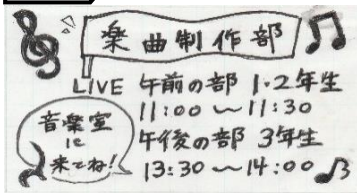 楽曲制作部
LIVE 午前の部 1・2年生
11:00 〜 11:30
午後の部 3年生
13:30 〜 14:00
音楽室
に
来てね!